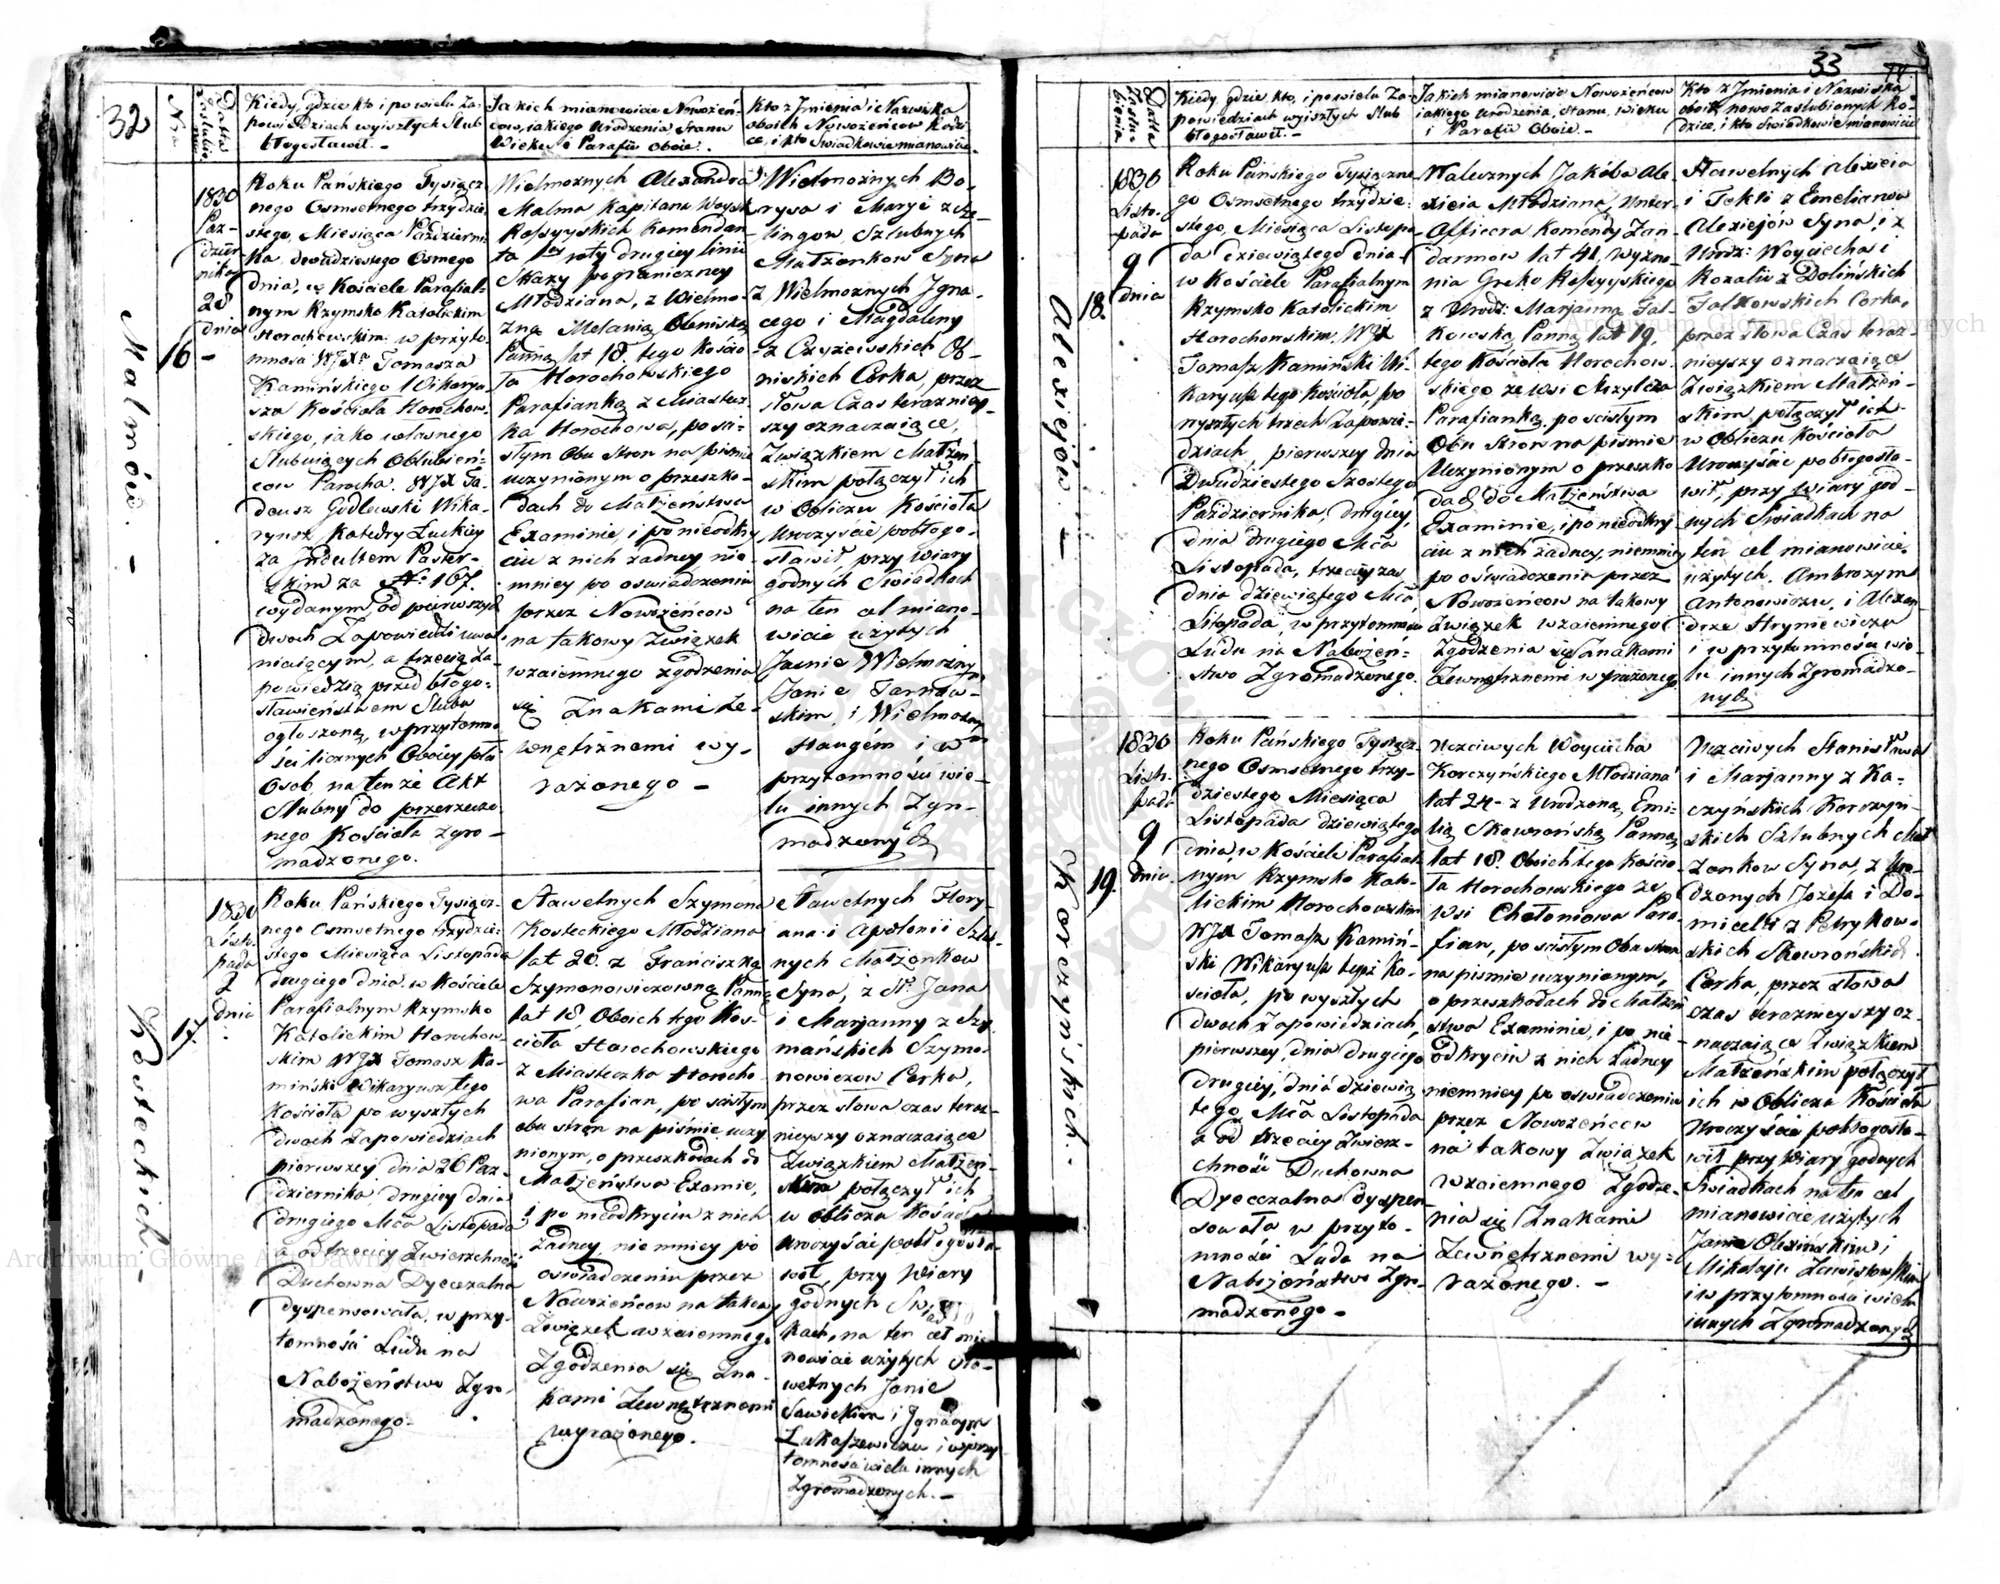 32
Nra
Datta Zaślubie
Kiedy, gdzie kto i po wielu Za-
powiedziach wyszłych Slub
błogosławił. -
Jakich mianowicie Nowożeń-
cow, iakiego Urodzenia, Stanu
Wieku i Parafii Oboie. -
Kto z Imienia i Nazwiska
oboich Nowożeńcow Rodzi-
ce, i kto Swiadkowie mianowicie
Malmów. -
16 -
1830
Paz-
dzier
nika
28
dnia
Roku Pańskiego Tysiącz
nego Osmsetnego trzydzie
stego, Miesiąca Październi
ka, dwudziestego Osmego
dnia, w Kościele Parafial-
nym Rzymsko Katolickim
Horochowskim w przyto
mnosci WJXa Tomasza
Kamińskiego Wikarya
sza Kościoła Horochow
skiego, iako własnego
Slubuiących Oblubień-
cow Parocha. WJX Ta-
deusz Godlewski Wika-
ryusz Katedry Łuckiey
za Indultem Paster-
skim za No 167.
wydanym, od pierwszych
dwoch Zapowiedzi uwa
niaiącym, a trzecią Za
powiedzią przed błogo-
sławieństwem Slubu
ogłoszoną, w przytomno
ści licznych Oboiey płci
Osob, na tenże Akt
Slubny do przerzeczo
nego Kościoła zgro-
madzonego.
Wielmożnych Alexandra
Malma Kapitana Woysk
Rossyyskich Komendan
ta 1ey roty drugiey linii
Strazy pograniczney
Młodziana, z Wielmo-
żną Melanią Obniską
Panną lat 18. tego Kościo
ła Horochowskiego
Parafianką z Miastecz-
ka Horochowa, po sci-
słym Obu Stron na piśmie
uczynionym o przeszko-
dach do Małżeństwa
Examinie i po nieodkry
ciu z nich żadney nie
mniey po oswiadczeniu
przez Nowożeńcow
na takowy Związek
wzaiemnego zgodzenia
się Znakami Ze-
wnętrznemi wy-
rażonego -
Wielmożnych Bo-
rysa i Maryi z
lingow, Szlubnych
Małżonkow Syna
z Wielmożnych Igna-
cego i Magdaleny
z Czyżewskich Ob-
niskich Corką, przez
słowa Czas teraźniey-
szy oznaczaiące,
Związkiem Małżeń
skim połączył ich
w Obliczu Kościoła
Uroczyście pobłogo-
sławił, przy Wiary
godnych Swiadkach
na ten cel miano-
wicie użytych
Jaśnie Wielmożnym
Janie Tarnaw-
skim, i Wielmożnym
Haugém i w
przytomności wie-
lu innych Zgro-
madzonych
Kosteckich. -
17.
1830
Listo-
pada
2
dnia
Roku Pańskiego Tysiącz-
nego Osmsetnego trzydzie-
stego Miesiąca Listopada
drugiego dnia w Kościele
Parafialnym Rzymsko
Katolickim Horochow-
skim WJX Tomasz Ka-
miński Wikaryusz tego
Kościoła po wyszłych
dwoch Zapowiedziach
pierwszey dnia 26 Paz-
dziernika, drugiey dnia
drugiego Mca Listopada
a od trzeciey Zwierzchność
Duchowna Dyecezalna
dyspensowała, w przy-
tomności Ludu na
Nabożeństwo Zgro-
madzonego -
Sławetnych Szymona
Kosteckiego Młodziana
lat 20. z Franciszką
Szymonowiczowną Panną
lat 18, Oboich tego Koś-
cioła Horochowskiego
z Miasteczka Horocho
wa Parafian, po scisłym
obu stron na piśmie uczy
nionym, o przeszkodach do
Małżeństwa Examie,
i po nieodkryciu z nich
żadney, nie mniey po
oswiadczeniu przez
Nowożeńcow na takowy
Związek wzaiemnego
Zgodzenia się Zna-
kami Zewnętrznemi
wyrażonego.
Sławetnych Flory-
ana i Apolonii Szlu-
bnych Małżonkow
Syna, z Sł. Jana
i Marjanny z Szy
mańskich Szymo-
nowiczow Corką,
przez słowa czas teraz-
nieyszy oznaczaiące
Związkiem Małżeń-
skim połączył ich
w obliczu Kościoła
uroczyście pobłogosła-
wił, przy Wiary
godnych Swiad
kach, na ten cel mia
nowicie użytych Sła-
wetnych Janie
Sawickim i Ignacym
Łukaszewiczu i w przy
tomności wielu innych
Zgromadzonych. -
33
Datta Zaślubienia
Kiedy, gdzie, kto, i po wielu Za-
powiedziach wyiszłych Slub
błogosławił. -
Jakich mianowicie Nowożeńcow
iakiego Urodzenia, Stanu, Wieku
i Parafii Oboie. -
Kto z Imienia i Nazwiska
oboich nowo Zaślubionych Ro-
dzice, i kto Swiadkowie mianowicie
Alexiejów. -
18.
1830
Listo-
pada
9
dnia
Roku Pańskiego Tysiączne-
go Osmsetnego trzydzie-
stego, Miesiąca Listopa-
da dziewiątego dnia
w Kościele Parafialnym
Rzymsko Katolickim
Horochowskim, WJX
Tomasz Kamiński Wi-
karyusz tego Kościoła, po
wyszłych trzech Zapowie-
dziach, pierwszey dnia
Dwudziestego Szostego
Października, drugiey,
dnia drugiego Mca
Listopada, trzeciey zaś
dnia dziewiątego Mca
Listopada, w przytomności
Ludu na Nabożeń-
stwo Zgromadzonego.
Walecznych Jakóba Ale-
xieia Młodziana, Unter-
Officera Komendy Żan-
darmow lat 41, wyzna-
nia Greko Rossyyskiego
z Urodz: Marjanną Fal-
kowską Panną lat 19.
tego Kościoła Horochow-
skiego ze wsi
Parafianką, po scisłym
Obu Stron na piśmie
Uczynionym o przeszko
dach do Małżeństwa
Examinie, i po nieodkry
ciu z nich żadney, niemniey
po oświadczeniu przez
Nowożeńcow na takowy
Związek wzaiemnego
Zgodzenia się Znakami
Zewnętrznemi wyrażonego
Sławetnych Alexieia
i Tekli z Emelianow
Alexiejów Syna, i z
Urodz: Woyciecha i
Rozalii z Dolińskich
Falkowskich Corką,
przez słowa Czas teraz-
nieyszy oznaczaiące
Związkiem Małżeń-
skim, połączył ich
w Obliczu Kościoła
Uroczyście pobłogosła-
wił, przy Wiary god-
nych Swiadkach na
ten cel mianowicie
użytych. Ambrożym
Antonowiczu, i Alexan-
drze Hryniewiczu
i w przytomności wie-
lu innych Zgromadzo-
nych
Korczyńskich. -
19.
1830
Listo-
pada
9
dnia.
Roku Pańskiego Tysiącz-
nego Osmsetnego trzy-
dziestego Miesiąca
Listopada dziewiątego
dnia, w Kościele Parafial-
nym Rzymsko Kato-
lickim Horochowskim
WJX Tomasz Kamiń-
ski Wikaryusz tegoż Ko-
ścioła, po wyszłych
dwoch Zapowiedziach,
pierwszey, dnia drugiego
drugiey, dnia dziewią
tego Mca Listopada
a od trzeciey Zwierz-
chność Duchowna
Dyecezalna dyspen-
sowała w przyto-
mności Ludu na
Nabożeństwo Zgro-
madzonego -
Uczciwych Woyciecha
Korczyńskiego Młodziana
lat 24 - z Urodzoną Emi-
lią Skowrońską Panną
lat 18. Oboich tego Kościo
ła Horochowskiego ze
Wsi Chołoniowa Para-
fian, po scisłym Obu stron
na piśmie uczynionym,
o przeszkodach do Małżeń
stwa Examinie, i po nie-
odkryciu z nich żadney
niemniey po oswiadczeniu
przez Nowożeńcow
na takowy Związek
Wzaiemnego Zgodze-
nia się Znakami
Zewnętrznemi wy-
rażonego. -
Uczciwych Stanisława
i Marjanny z Ka-
czyńskich Korczyń-
skich Szlubnych Mał
żonkow Syna, z Uro-
dzonych Jozefa i Do-
micelli z Petrykow-
skich Skowrońskich
Corką, przez słowa
czas teraznieyszy oz-
naczaiące Związkiem
Małżeńskim połączył
ich w Obliczu Kościoła
Uroczyście pobłogosła-
wił przy Wiary godnych
Świadkach na ten cel
mianowicie użytych
Janie Olexińskim i
Mikołaju Zawistowskim
i w przytomności wielu
innych Zgromadzonych
Archiwum Główne Akt Dawnych
Archiwum Główne Akt Dawnych